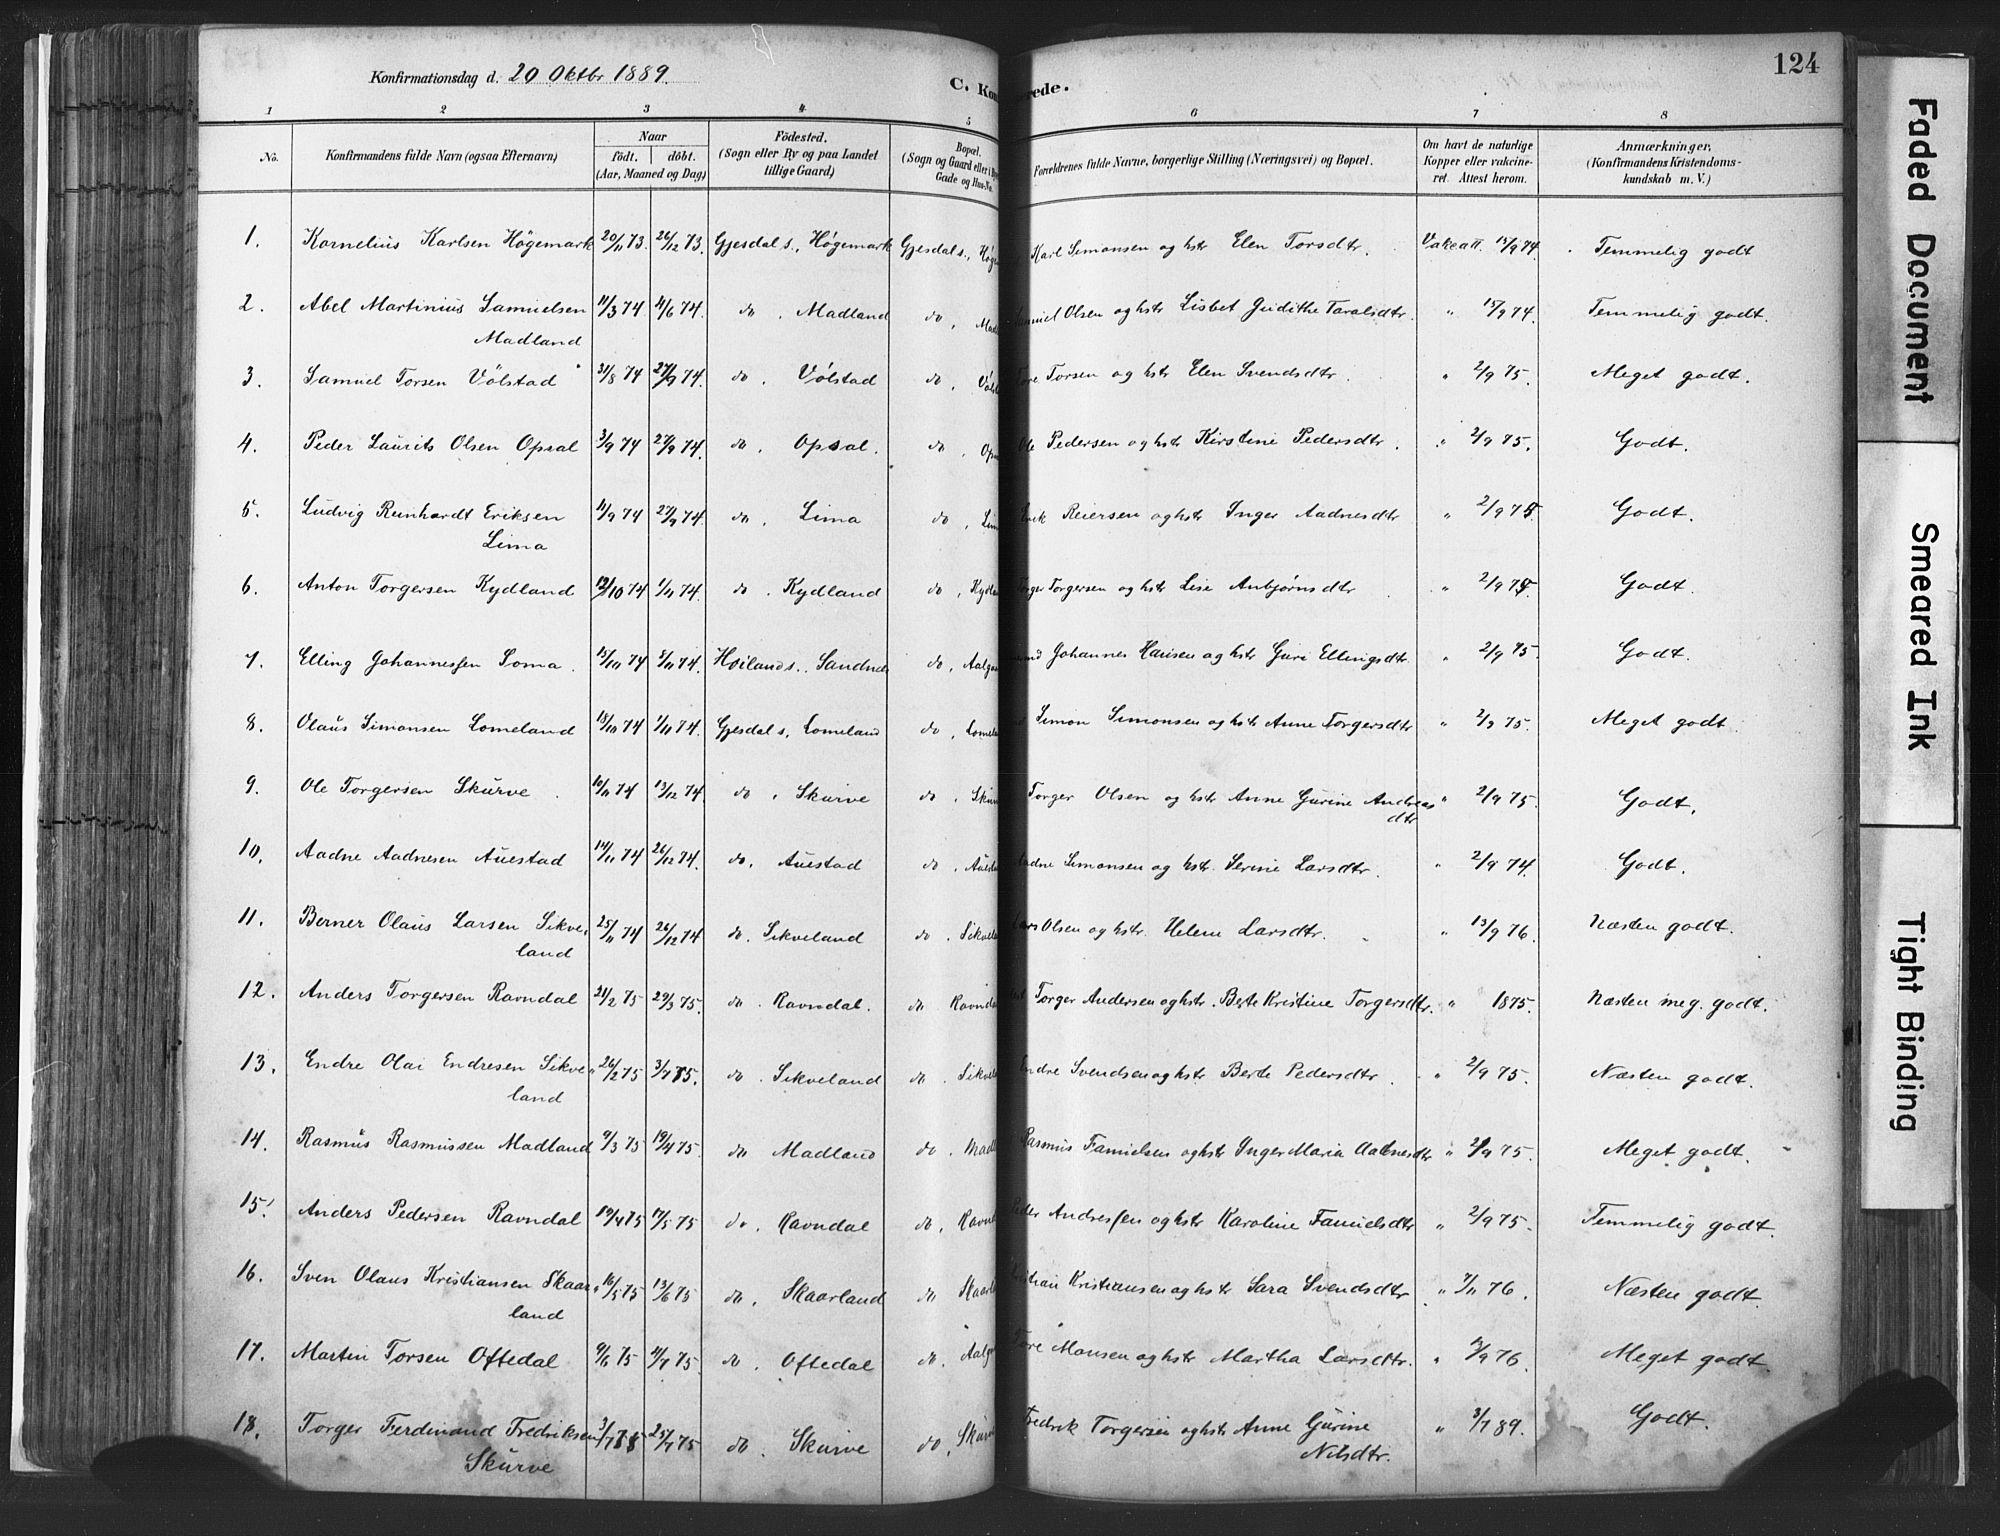 124
Konfirmationsdag d. 20 Oktbr 1889.
C. Kon rede.
1 2 3 4 5 6 7 8
No.
Konfirmandens fulde Navn (ogsaa Efternavn)
Naar
födt. döbt.
(Aar, Maaned og Dag)
Födested.
(Sogn eller By og paa Landet
tillige Gaard)
Bopæl.
(Sogn og Gaard eller i
Gade og Hus-No.
Forældrenes fulde Navne, borgerlige Stilling (Næringsvei) og Bopæl.
Om havt de naturlige
Kopper eller vakcine-
ret. Attest herom.
Anmærkninger,
(Konfirmandens Kristendoms-
kundskab m. V.)
1. Kornelius Karlsen Högemark 20/11 73. 26/12 73. Gjesdal s., Høgemark Gjesdal s., Høge Karl Simonsen og hstr Elen Torsdtr. Vakcatt. 15/9 74. Temmelig godt
2. Abel Martinius Samuelsen 11/3 74 4/6 74. do , Madland do , Madl Samuel Olsen og hstr Lisbet Judithe Taraldsdtr. " 15/9 74. Temmelig godt.
Madland
3. Samuel Torsen Vølstad 31/8 74 27/9 74. do , Vølstad do , Vøls Tore Torsen og hstr Elen Svendsdtr. " 2/9 75. Meget godt.
4. Peder Laurits Olsen Opsal 3/9 74 27/9 74. do , Opsal. do , Ops Ole Pedersen og hstr Kirstine Pedersdtr. " 2/9 75. Godt.
5. Ludvig Reinhardt Eriksen 11/9 74 27/9 74. do , Lima do , Lim Erik Reiersen og hstr Inger Aadnesdtr " 2/9 75. Godt.
Lima
6. Anton Torgersen Kydland 12/10 74 1/11 74. do , Kydland do , Kydla Torger Torgersen og hstr Lise Anbjørnsdtr " 2/9 75. Godt.
7. Elling Johannessen Soma 15/10 74 8/11 74. Høilands., Sandnes do , Aalga Johannes Hansen og hstr Guri Ellingsdtr " 2/9 75. Godt.
8. Olaus Simonsen Lomeland 15/10 74 1/11 74. Gjesdal s, Lomeland do , Lomela Simon Simonsen og hstr Anne Torgersdtr " 2/9 75. Meget godt.
9. Ole Torgersen Skurve 10/11 74 13/12 74. do , Skurve do , Skur Torger Olsen og hstr Anne Gurine Andreas " 2/9 75. Godt.
dtr
10. Aadne Aadnesen Auestad 14/11 74 26/12 74. do , Auestad do , Auest Aadne Simonsen og hstr. Serine Larsdtr. " 2/9 74. Godt.
11. Berner Olaus Larsen Sikve- 25/11 74 26/12 74 do , Sikveland do , Sikvela Lars Olsen og hstr. Helene Larsdtr. " 13/9 76. Næsten godt.
land
12. Anders Torgersen Ravndal 21/2 75 29/3 75. do , Ravndal. do , Ravnda Torger Andersen og hstr. Berte Kristine Torgersdtr. " 1875. Næsten meg. godt.
13. Endre Olai Endresen Sikve- 26/2 75 3/4 75. do , Sikveland do , Sikvela Endre Svendsen og hstr Berte Pedersdtr. " 2/9 75. Næsten godt.
land
14. Rasmus Rasmussen Madland 9/3 75 19/4 75. do , Madland do , Madl Rasmus Samielsen og hstr Inger Maria Aadnesdtr " 2/9 75. Meget godt.
15. Anders Pedersen Ravndal 19/4 75 17/5 75 do , Ravndal do , Ravnd Peder Andressen og hstr Karoline Samuelsdtr " 2/9 75. Temmelig godt.
16. Sven Olaus Kristiansen Skaar- 16/5 75 13/6 75 do , Skaarland do , Skaarl Kristian Kristiansen og hstr Sara Svendsdtr " 7/11 76. Næsten godt.
land
17. Martin Torsen Oftedal 9/6 75 11/7 75 do , Oftedal do , Aalga Tore Monsen og hstr Martha Larsdtr. " /9 76. Meget godt.
18. Torger Ferdinand Fredriksen 3/7 75 25/7 75 do , Skurve do , Skurv Fredrik Torgersen og hstr Anne Gurine " 3/7 89. Godt.
Skurve Nilsdtr.
Faded Document
Smeared Ink
Tight Binding